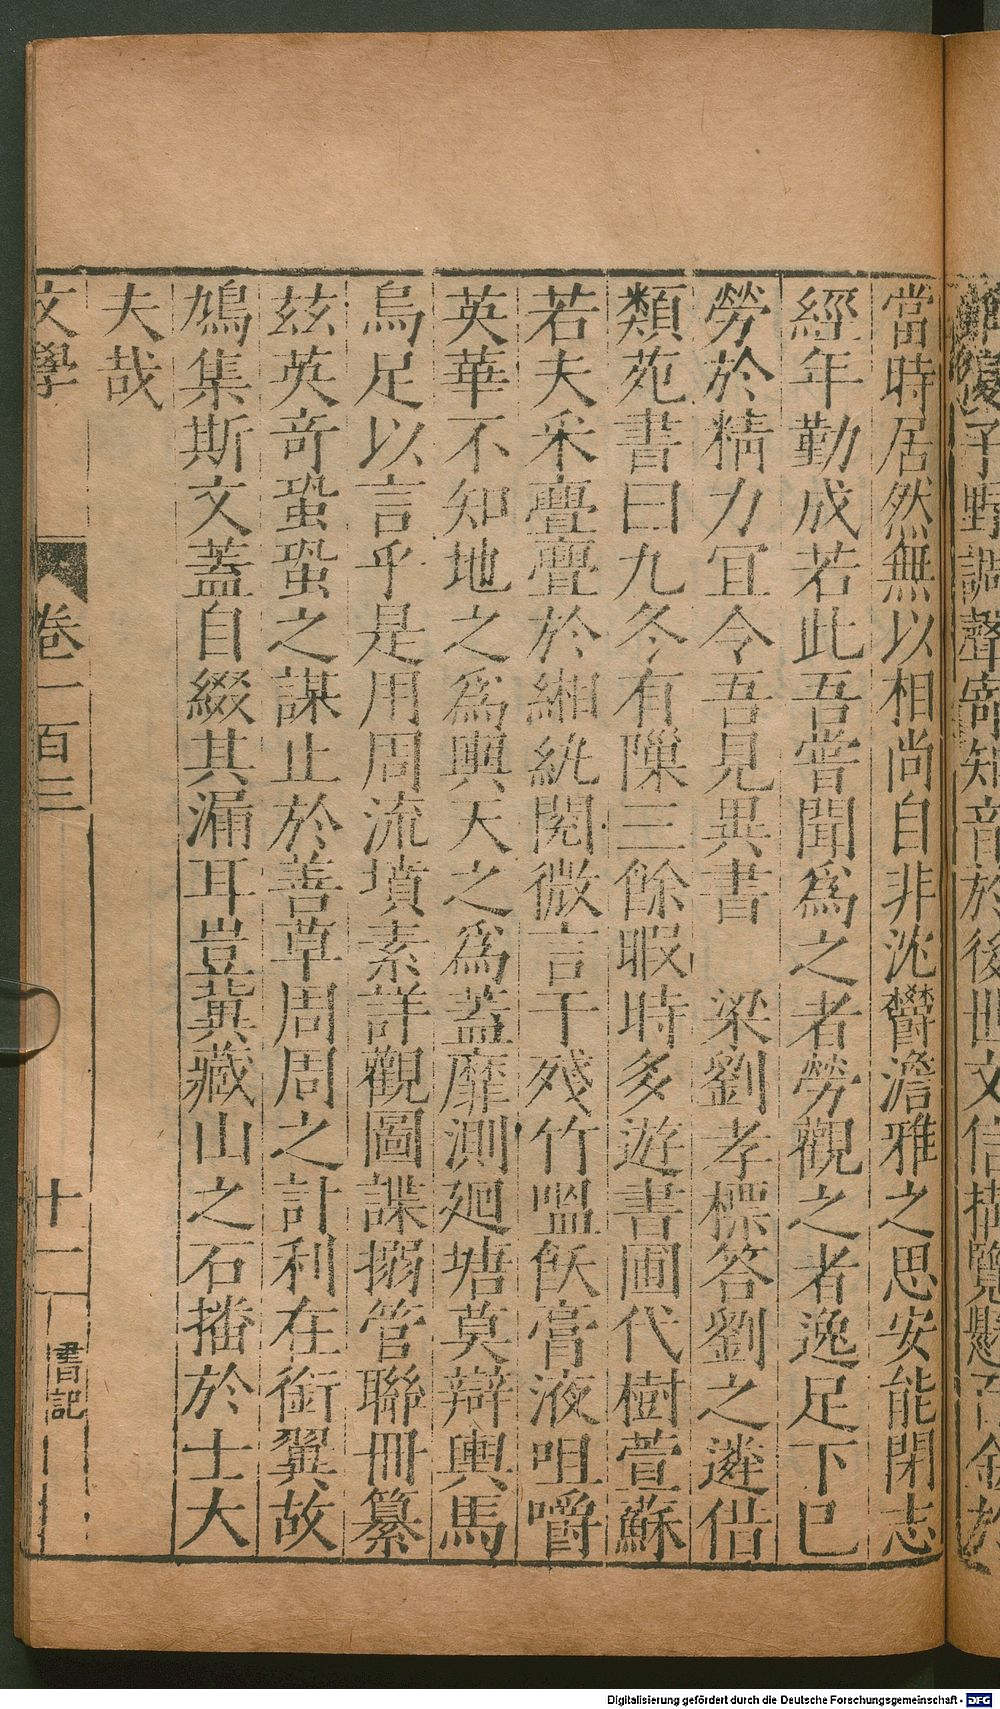 子野調聲寄知音於後世文信搆覽懸百金於
當時居然無以相尚自非沈鬱澹雅之思安能閉志
經年勤成若此吾嘗聞爲之者勞觀之者逸足下已
勞於精力宜令吾見異書　梁劉孝標答劉之遴借
類苑書曰九冬有隟三餘暇時多遊書圃代樹萱蘇
若夫采亹亹於緗紈閱微言于殘竹嗢飫膏液咀嚼
英華不知地之爲輿天之爲蓋靡測廻塘莫辯輿馬
烏足以言乎是用周流墳素詳觀圖諜搦管聯冊纂
兹英奇蛩蛩之謀止於善草周周之計利在銜翼故
鳩集斯文蓋自綴其漏耳豈冀藏山之石播於士大
夫哉
文學 卷一百三 十一 書記
Digitalisierung gefördert durch die Deutsche Forschungsgemeinschaft - DFG